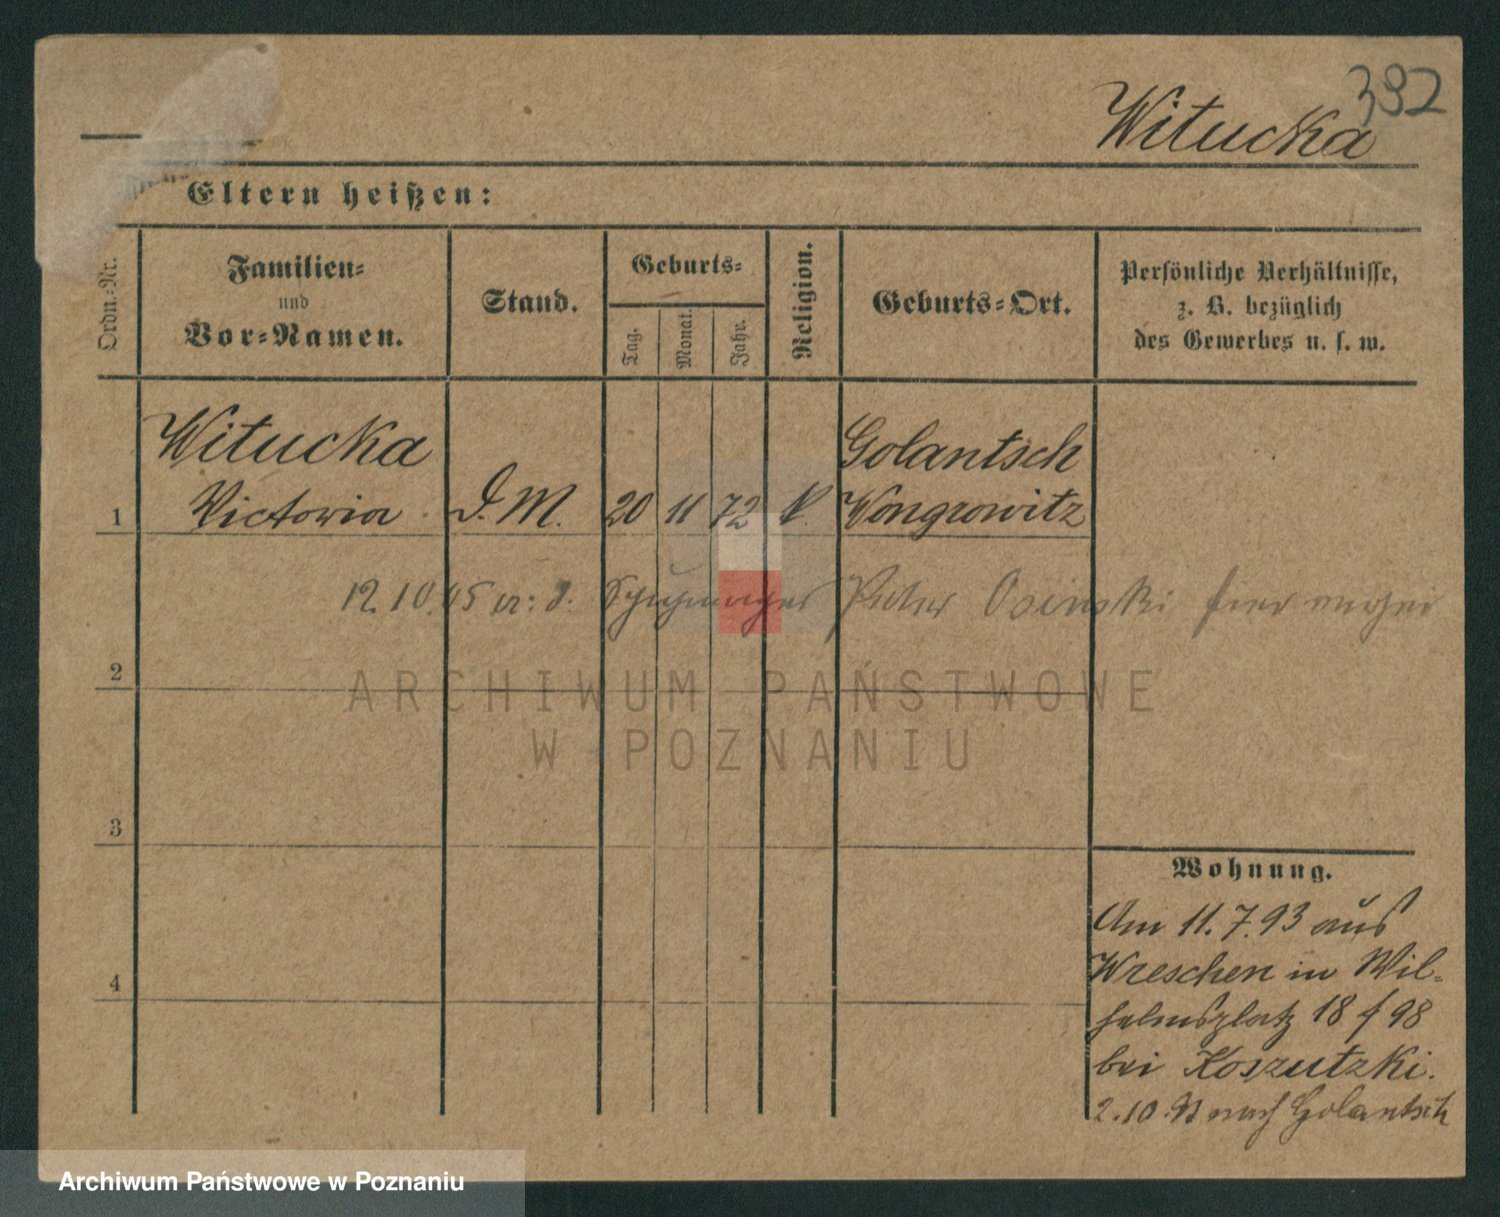 392
Witucka
Eltern heißen:
Ordn.-Nr.
Familien-
und
Vor-Namen.
Stand.
Geburts-
Tag.
Monat.
Jahr.
Religion.
Geburts-Ort.
Persönliche Verhältnisse,
z. B. bezüglich
des Gewerbes u. s. w.
Witucka Golantsch
1 Victoria D. M. 20 11 72 k. Wongrowitz
12.10.05 Peter Osinski
2
ARCHIWUM PAŃSTWOWE
W POZNANIU
3
Wohnung.
Am 11. 7. 93 aus
Wreschen in Wil-
helmsplatz 18 f 98
4
bei Koszutzki.
2.10. nach Golantsch
Archiwum Państwowe w Poznaniu